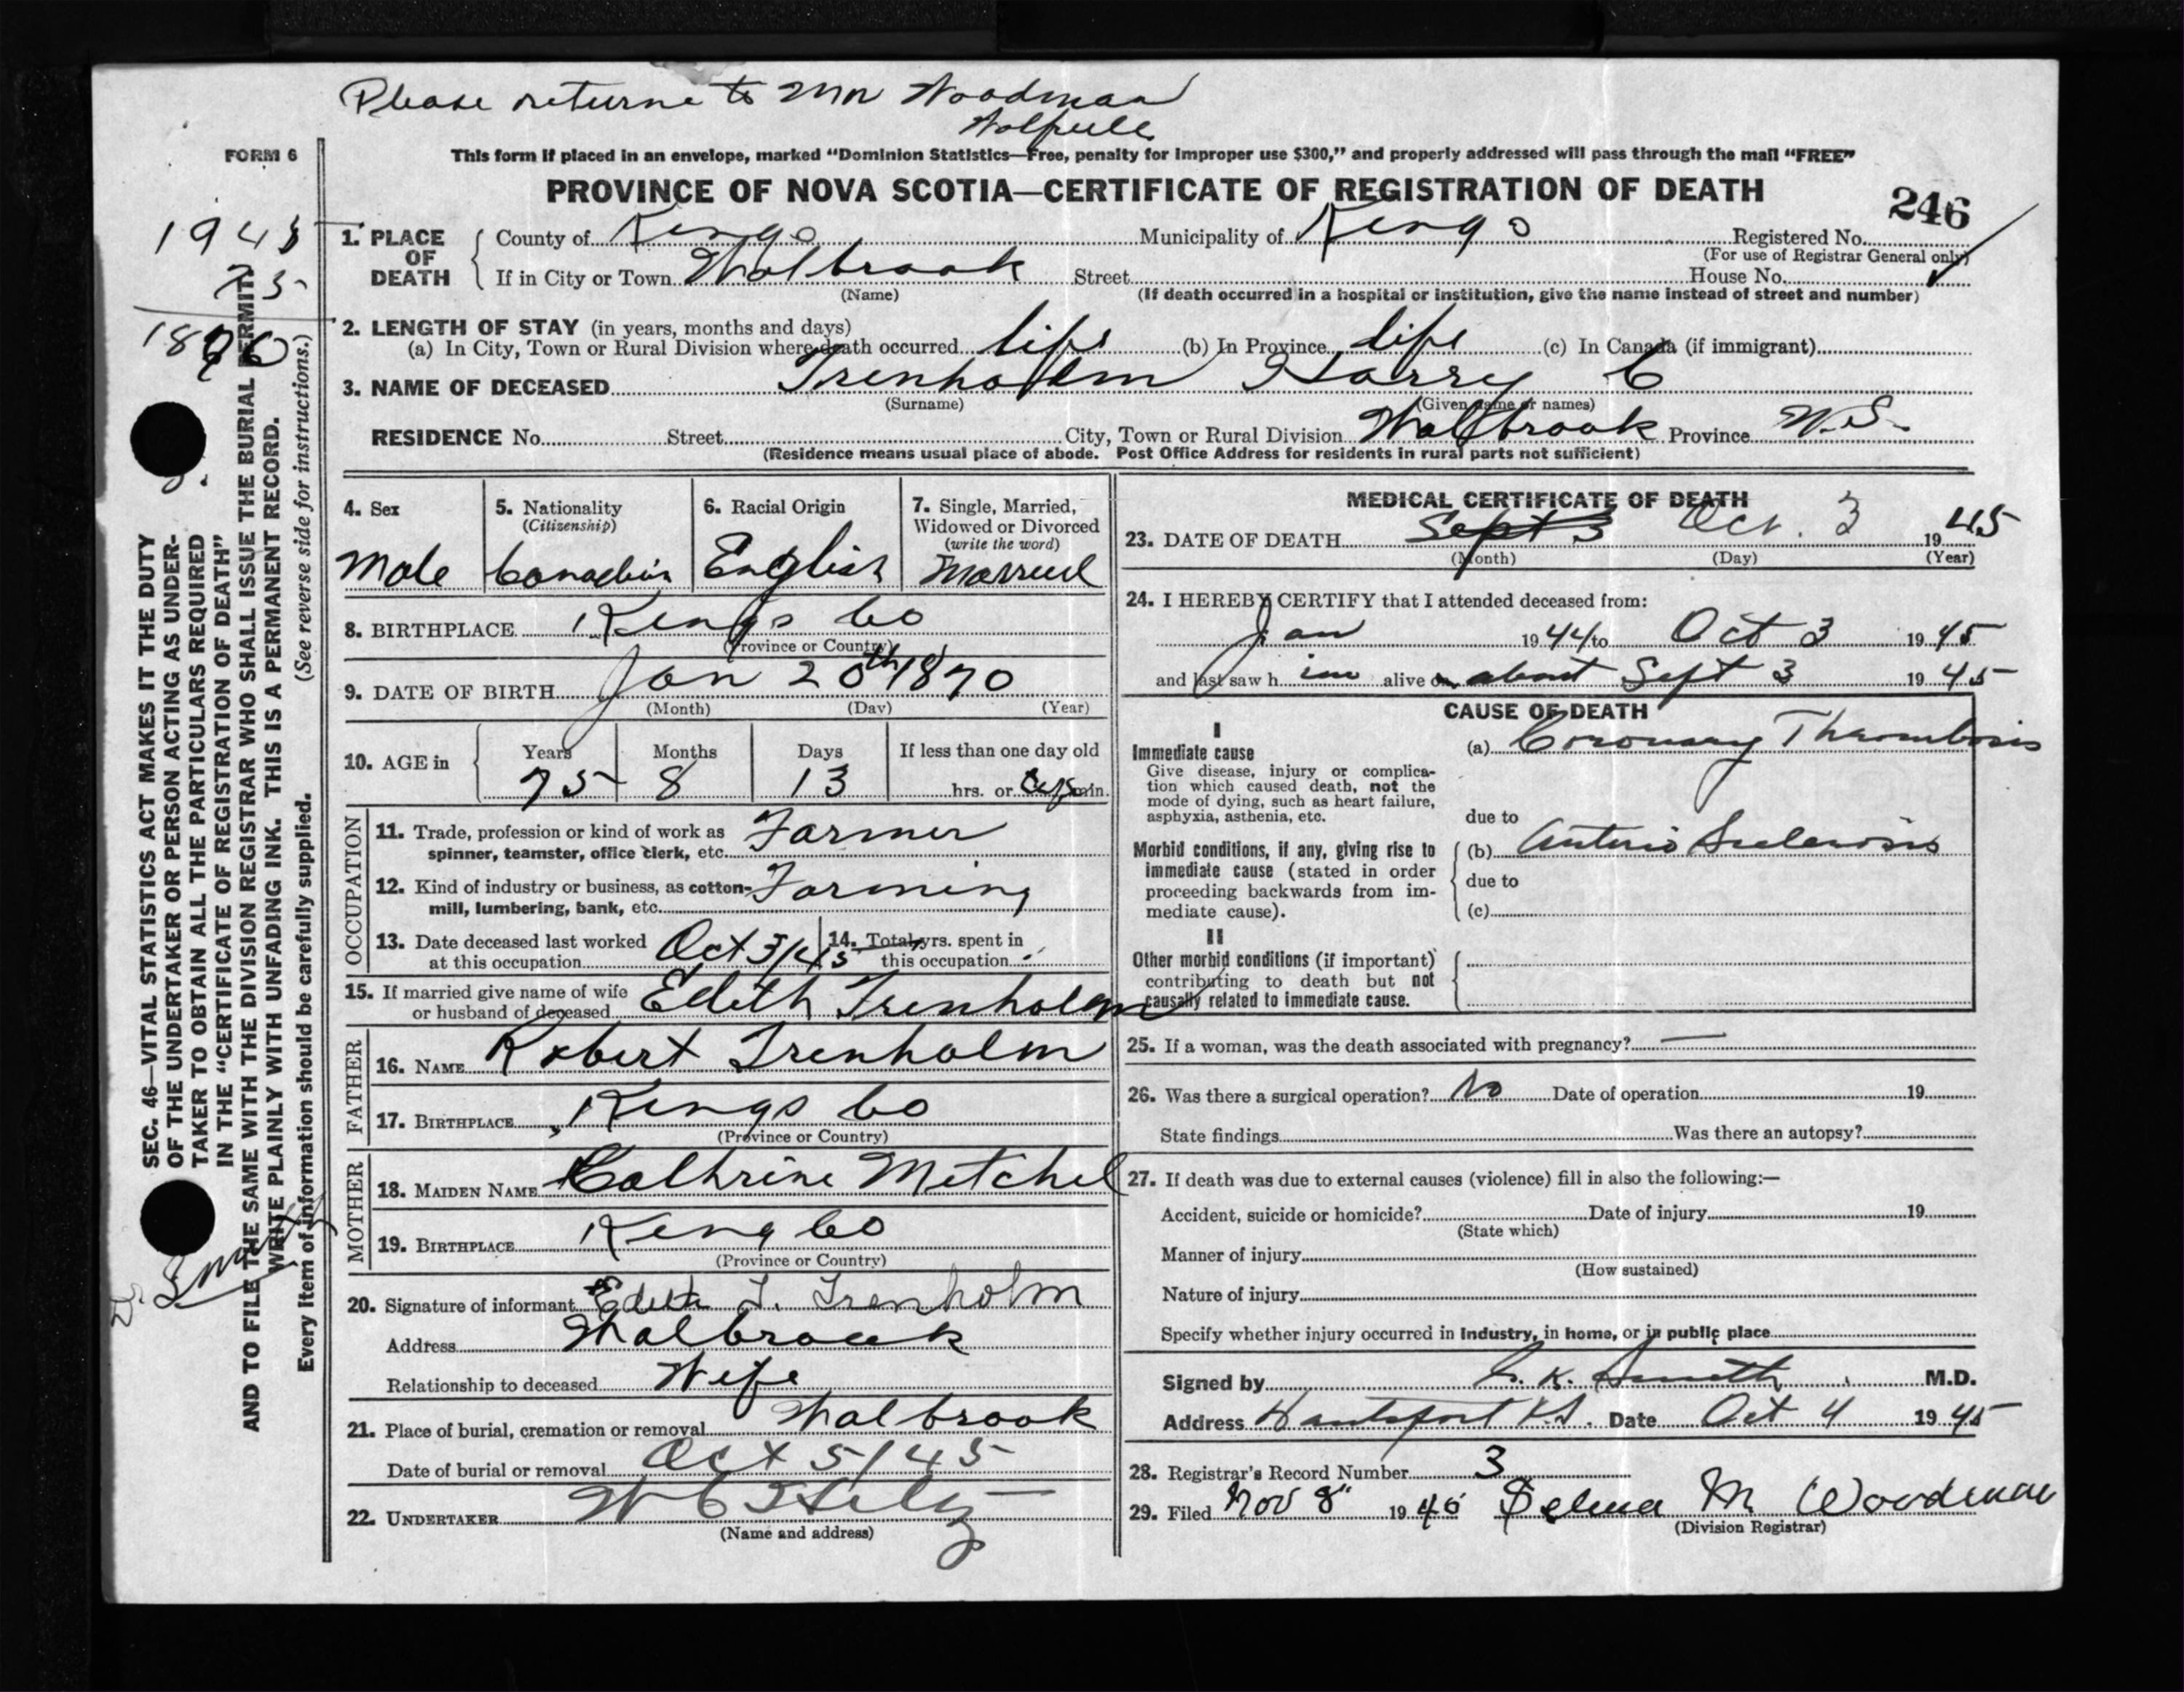 Please returne to Mr Woodman
FORM 6
This form if placed in an envelope, marked “Dominion Statistics—Free, penalty for improper use $300,” and properly addressed will pass through the mail “FREE”
PROVINCE OF NOVA SCOTIA—CERTIFICATE OF REGISTRATION OF DEATH
246
1945
75
1870
SEC. 46—VITAL STATISTICS ACT MAKES IT THE DUTY
OF THE UNDERTAKER OR PERSON ACTING AS UNDER-
TAKER TO OBTAIN ALL THE PARTICULARS REQUIRED
IN THE “CERTIFICATE OF REGISTRATION OF DEATH”
AND TO FILE THE SAME WITH THE DIVISION REGISTRAR WHO SHALL ISSUE THE BURIAL PERMIT.
WRITE PLAINLY WITH UNFADING INK. THIS IS A PERMANENT RECORD.
Every item of information should be carefully supplied. (See reverse side for instructions.)
1. PLACE OF DEATH
County of Kings Municipality of Kings Registered No.
(For use of Registrar General only)
If in City or Town Wolbrook Street House No.
(Name) (If death occurred in a hospital or institution, give the name instead of street and number)
2. LENGTH OF STAY (in years, months and days)
(a) In City, Town or Rural Division where death occurred life (b) In Province life (c) In Canada (if immigrant)
3. NAME OF DECEASED Trenholm Harry C
(Surname) (Given name or names)
RESIDENCE No. Street City, Town or Rural Division Wolbrook Province N.S.
(Residence means usual place of abode. Post Office Address for residents in rural parts not sufficient)
4. Sex
Male
5. Nationality
(Citizenship)
Canadian
6. Racial Origin
English
7. Single, Married,
Widowed or Divorced
(write the word)
Married
8. BIRTHPLACE Kings Co
(Province or Country)
9. DATE OF BIRTH Jan 20th 1870
(Month) (Day) (Year)
10. AGE in
Years Months Days If less than one day old
75 8 13 hrs. or min.
OCCUPATION
11. Trade, profession or kind of work as
spinner, teamster, office clerk, etc. Farmer
12. Kind of industry or business, as cotton-
mill, lumbering, bank, etc. Farming
13. Date deceased last worked
at this occupation Oct 3/45
14. Total yrs. spent in
this occupation
15. If married give name of wife
or husband of deceased Edith Trenholm
FATHER
16. NAME Robert Trenholm
17. BIRTHPLACE Kings Co
(Province or Country)
MOTHER
18. MAIDEN NAME Cathrine Metchel
19. BIRTHPLACE King Co
(Province or Country)
20. Signature of informant Edith T. Trenholm
Address Wolbrook
Relationship to deceased Wife
21. Place of burial, cremation or removal Wolbrook
Date of burial or removal Oct 5/45
22. UNDERTAKER
(Name and address)
MEDICAL CERTIFICATE OF DEATH
23. DATE OF DEATH Sept 3 Oct. 3 1945
(Month) (Day) (Year)
24. I HEREBY CERTIFY that I attended deceased from:
Jan 1944 to Oct 3 1945
and last saw him alive on about Sept 3 1945
CAUSE OF DEATH
I
Immediate cause
Give disease, injury or complica-
tion which caused death, not the
mode of dying, such as heart failure,
asphyxia, asthenia, etc.
(a) Coronary Thrombosis
due to
Morbid conditions, if any, giving rise to
immediate cause (stated in order
proceeding backwards from im-
mediate cause).
(b) Arterio Sclerosis
due to
(c)
II
Other morbid conditions (if important)
contributing to death but not
causally related to immediate cause.
25. If a woman, was the death associated with pregnancy? —
26. Was there a surgical operation? No Date of operation 19
State findings Was there an autopsy?
27. If death was due to external causes (violence) fill in also the following:—
Accident, suicide or homicide? Date of injury 19
(State which)
Manner of injury
(How sustained)
Nature of injury
Specify whether injury occurred in industry, in home, or in public place
Signed by K. Smith M.D.
Address Hantsport N.S. Date Oct 4 1945
28. Registrar's Record Number 3
29. Filed Nov 8" 1945 Selma M Woodman
(Division Registrar)